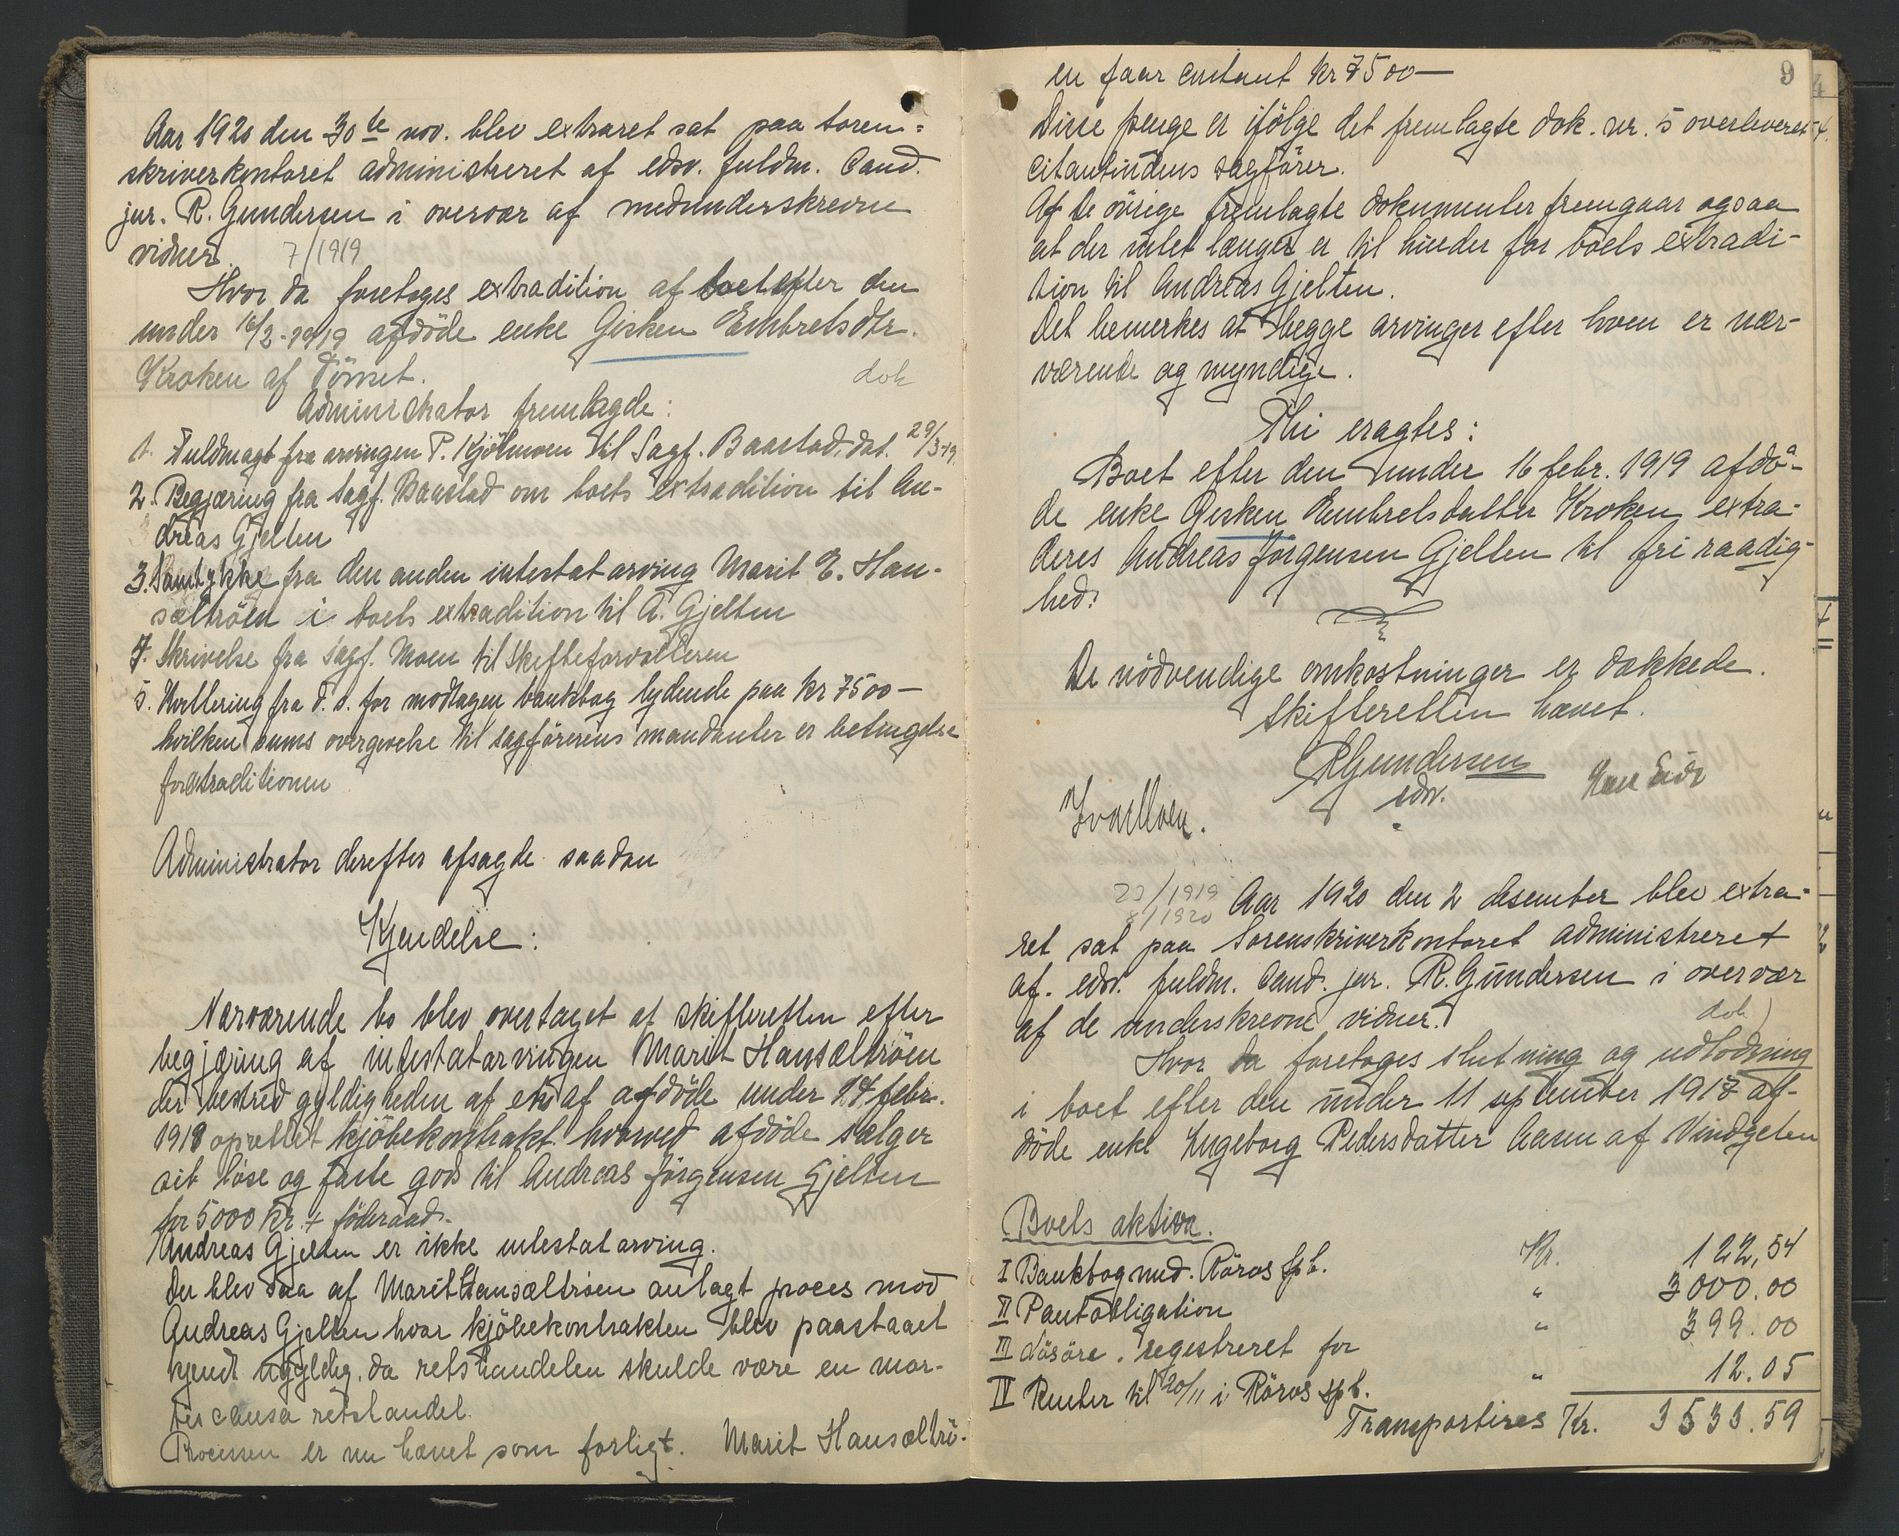 Aar 1920 den 30te nov. blev extraret sat paa soren=
skriverkontoret administreret af edsv. fuldm. Cand.
jur. R. Gundersen i overvær af medunderskrevne
vidner.
7/1919
Hvor da foretoges extradition af boet efter den
under 16/2-1919 afdöde enke Gisken Embretsdtr.
Kroken af Tönset.
dok
Administrator fremlagde:
1. Fuldmagt fra arvingen P. Kjölmoen til Sagf. Baastad, dat. 29/3-19.
2. Begjæring fra sagf. Baastad om boets extradition til An-
dreas Gjelten
3. Samtykke fra den anden intestatarving Marit E. Han-
sæltröen i boets extradition til A. Gjelten
4. Skrivelse fra sagf. Moen til Skifteforvalteren
5. Kvittering fra d. s. for modtagen bankbog lydende paa kr 7500—
hvilken sums overgivelse til sagförerens mandanter er betingelse
for extraditionen
Administrator derefter afsagde saadan
Kjendelse:
Nærværende bo blev overtaget af skifteretten efter
begjæring af intestatarvingen Marit Hansæltröen
der bestred gyldigheden af en af afdöde under 14 febr.
1918 oprettet kjöbekontrakt hvorved afdöde sælger
sit löse og faste gods til Andreas Jörgensen Gjelten
for 5000 kr. + föderaad.
Andreas Gjelten er ikke intestatarving.
Der blev saa af Marit Hansæltröen anlagt proces mod
Andreas Gjelten hvor kjöbekontrakten blev paastaaet
kjendt ugyldig, da retshandelen skulde være en mor-
tis causa retshandel.
Processen er nu hævet som forligt. Marit Hansæltrö-
9
en faar contant kr 7500—
Disse penge er ifölge det fremlagte dok. nr. 5 overleveret
citantindens sagförer.
Af de övrige fremlagte dokumenter fremgaar ogsaa
at der intet længer er til hinder for boets extradi-
tion til Andreas Gjelten.
Det bemerkes at begge arvinger efter loven er nær-
værende og myndige.
Thi eragtes:
Boet efter den under 16 febr. 1919 afdö-
de enke Gisken Embretsdatter Kroken extra-
deres Andreas Jörgensen Gjelten til fri raadig-
hed.
De nödvendige omkostninger er dækkede.
Skifteretten hævet.
RGundersen
edsv.
Ivar Moen.
23/1919
8/1920
Aar 1920 den 2 desember blev extra-
ret sat paa Sorenskriverkontoret administreret
af edsv. fuldm. Cand. jur. R. Gundersen i overvær
af de underskrevne vidner.
dok)
Hvor da foretoges slutning og udlodning
i boet efter den under 11 september 1917 af-
döde enke Ingeborg Pedersdatter Aasen af Vindgelen
Boets aktiva.
I Bankbog med Röros spb. Kr. 122,54
II Pantobligation " 3000.00
III Lösöre, registreret for " 399.00
IV Renter til 20/11 i Röros spb. " 12.05
Transporteres Kr. 3533.59